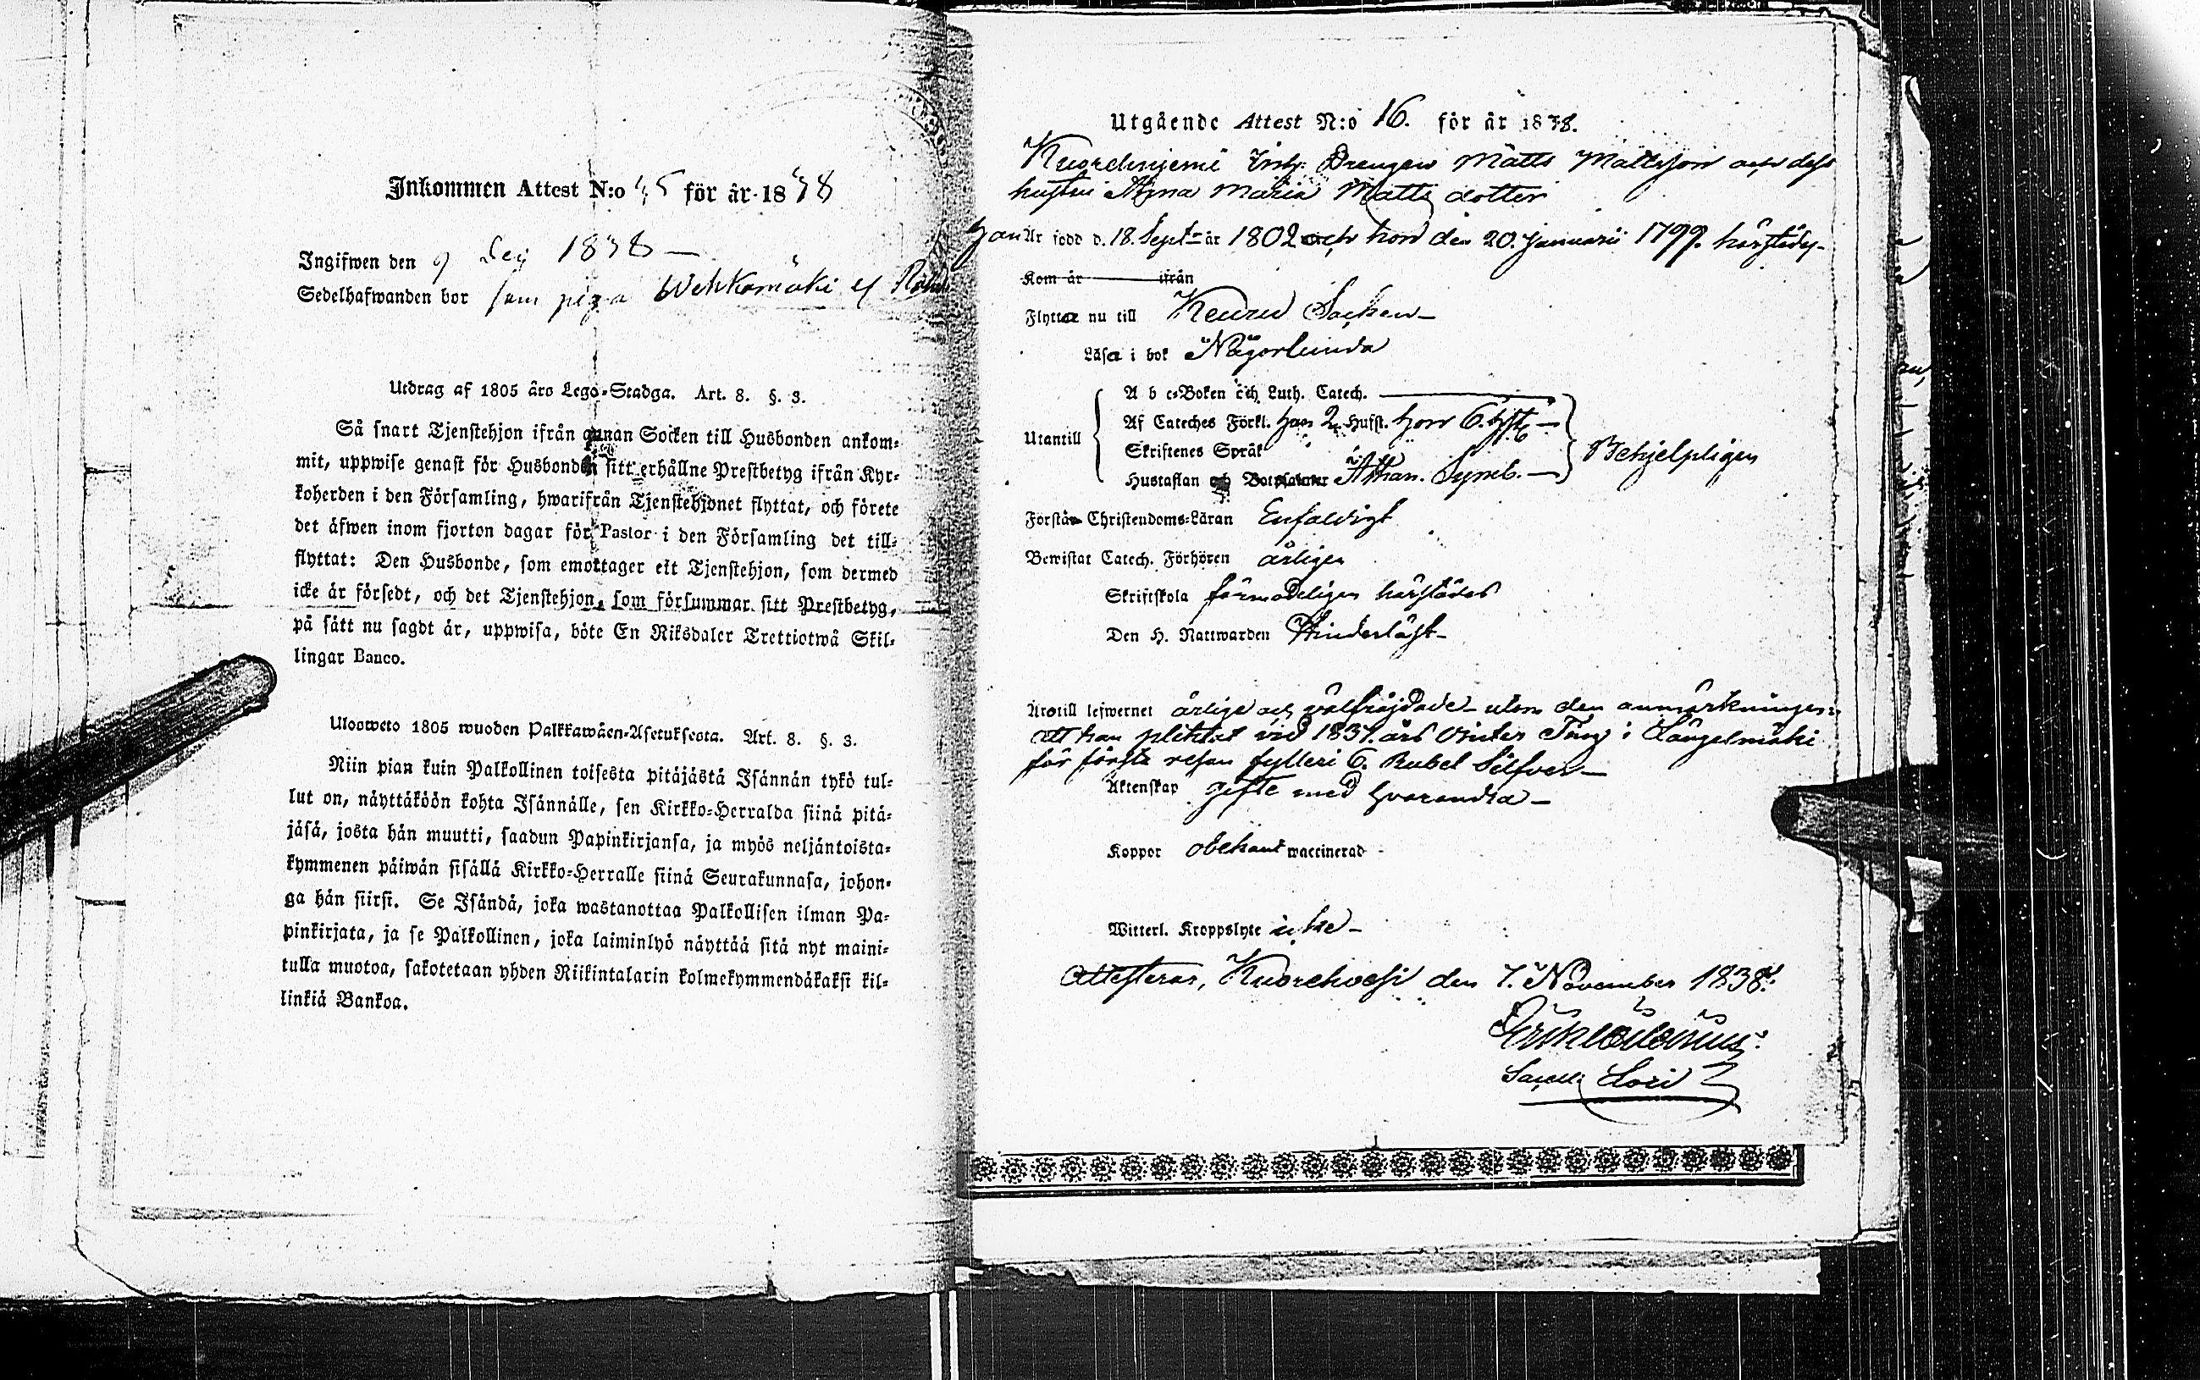 Inkommen Attest N:o 45 för år 1838
Ingifwen den 9 Dec 1838 —
Sedelhafwanden bor som piga Wehkamäki
Utdrag af 1805 års Lego-Stadga. Art. 8. §. 3.
Så snart Tjenstehjon ifrån annan Socken till Husbonden ankom-
mit, uppwise genast för Husbonden sitt erhållne Prestbetyg ifrån Kyr-
koherden i den Församling, hwarifrån Tjenstehjonet flyttat, och förete
det äfwen inom fjorton dagar för Pastor i den Församling det till-
flyttat: Den Husbonde, som emottager ett Tjenstehjon, som dermed
icke är försedt, och det Tjenstehjon, som försummar sitt Prestbetyg,
på sätt nu sagdt är, uppwisa, böte En Riksdaler Trettiotwå Skil-
lingar Banco.
Ulosweto 1805 wuoden Palkkawäen-Asetuksesta. Art. 8. §. 3.
Niin pian kuin Palkollinen toisesta pitäjästä Isännän tykö tul-
lut on, näyttäköön kohta Isännälle, sen Kirkko-Herralda siinä pitä-
jäsä, josta hän muutti, saadun Papinkirjansa, ja myös neljäntoista-
kymmenen päiwän sisällä Kirkko-Herralle siinä Seurakunnasa, johon-
ga hän siirsi. Se Isändä, joka wastanottaa Palkollisen ilman Pa-
pinkirjata, ja se Palkollinen, joka laiminlyö näyttää sitä nyt maini-
tulla muotoa, sakotetaan yhden Riikintalarin kolmekymmendäkaksi kil-
linkiä Bankoa.
Utgående Attest N:o 16. för år 1838.
Drengen Matts Mattsson och dess
hustru Anna Maria Matts dotter
Han Är född d. 18. Septr år 1802 och hon den 20. Januarii 1799. härstädes
Kom år ifrån
Flyttar nu till Keuru Socken —
Läsa i bok Någorlunda
Utantill
A b c-Boken och Luth. Catech.
Af Cateches Förkl. han 2. Hufst. hon 6. Hfst.
Skriftenes Språk
Hustaflan och Athan. Symb. —
Behjelpligen
Förstå Christendoms-Läran Enfaldigt
Bewistat Catech. Förhören årligen
Skriftskola förmodeligen härstädes
Den H. Nattwarden Hinderlöst —
Är till lefwernet ärlige och välfrägdade — utom den anmärkningen:
att han pliktat vid 1837. års Vinter Ting i Längelmäki
för första resan fylleri 6. Rubel Silfver —
Äktenskap gifte med hvarandra —
Koppor obekant waccinerad
Witterl. Kroppslyte icke —
Attesteras, Kuorehvesi den 7. November 1838.